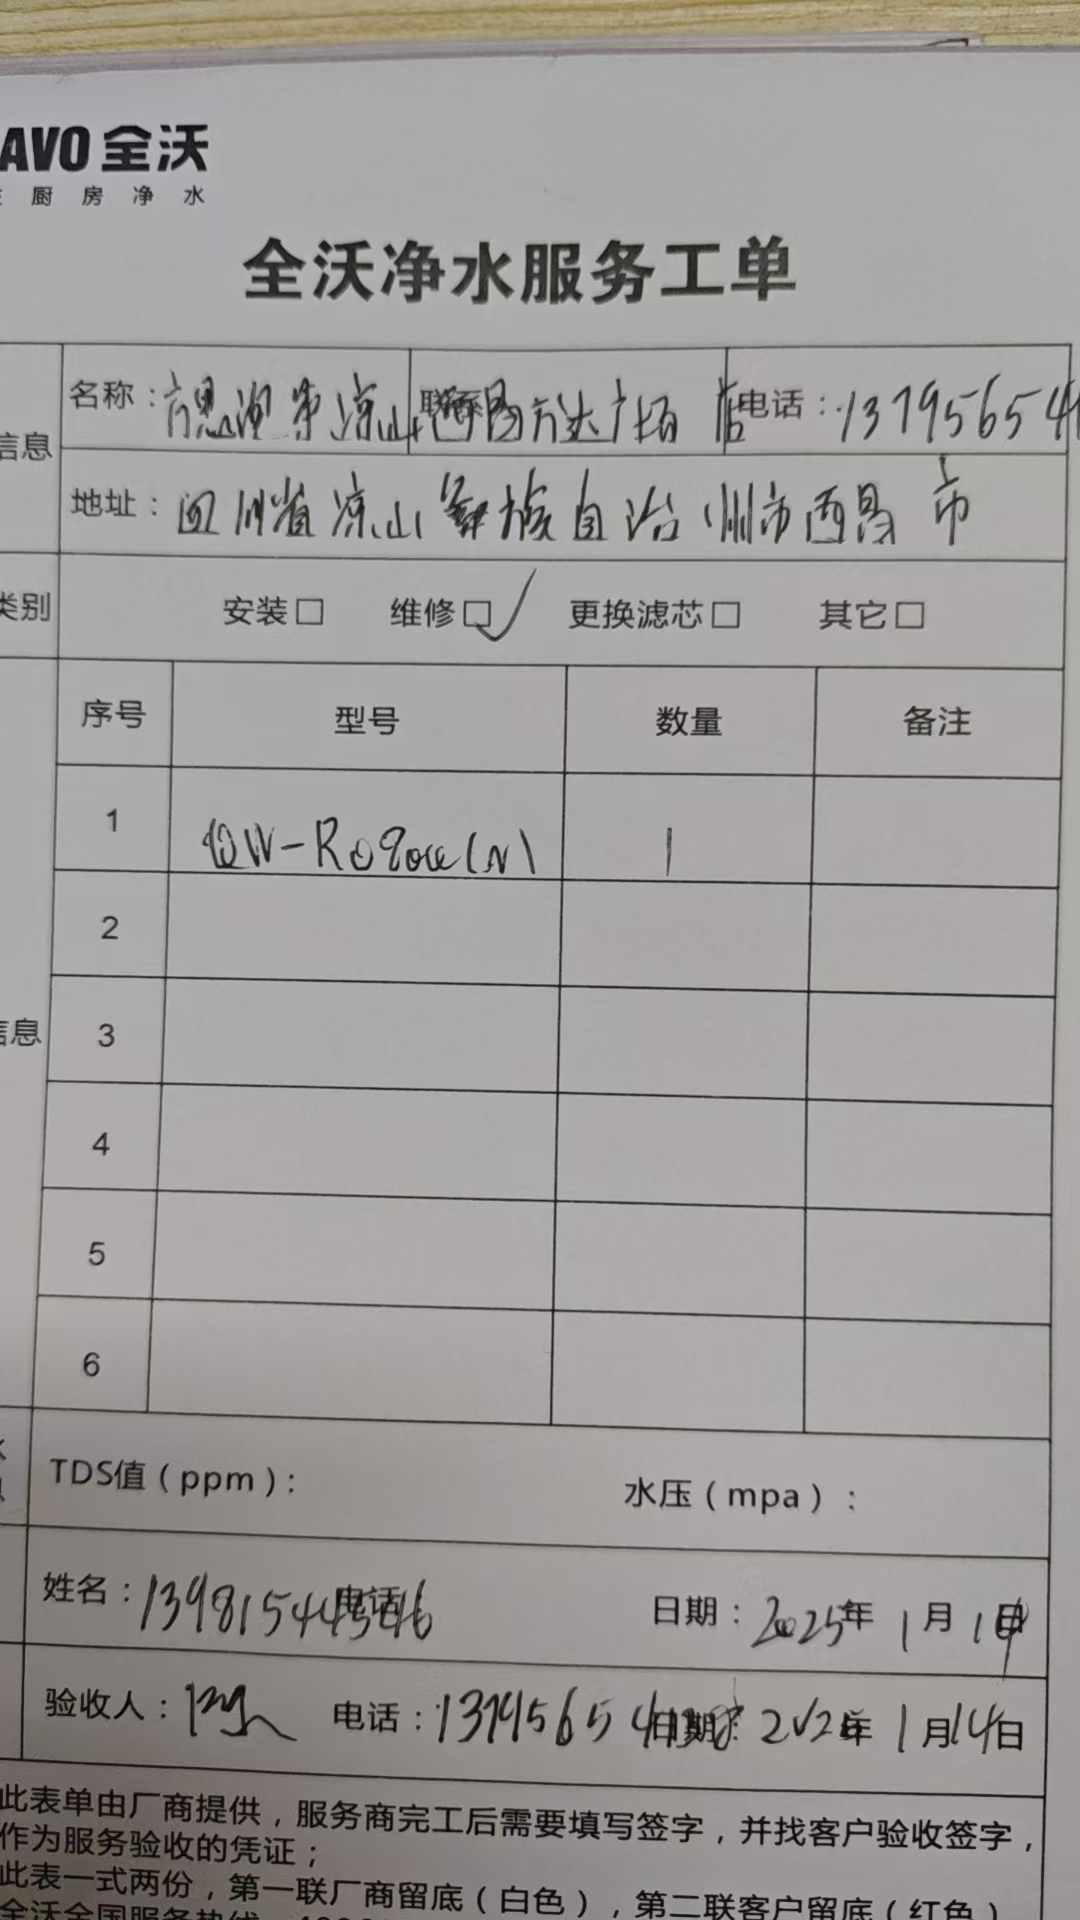 AVO 全沃
厨房净水
全沃净水服务工单
信息
名称：方恩湖凉山西昌万达广场店 联系 电话：137956541
地址：四川省凉山彝族自治州市西昌市
类别 安装□ 维修□✓ 更换滤芯□ 其它□
序号 型号 数量 备注
1 QW-R0900(N) 1
2
信息 3
4
5
6
TDS值（ppm）： 水压（mpa）：
姓名：13981544546 电话 日期：2025年1月14日
验收人： 电话：1379565 日期：2025年1月14日
此表单由厂商提供，服务商完工后需要填写签字，并找客户验收签字，
作为服务验收的凭证；
此表一式两份，第一联厂商留底（白色），第二联客户留底（红色）
全沃全国服务热线